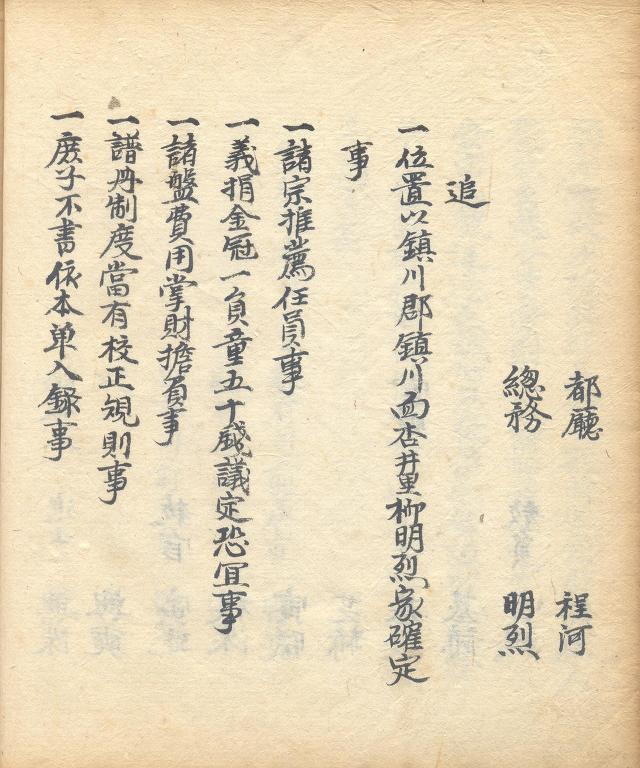 都廳 程河
總務 明烈
追
一位置以鎮川郡鎮川面杏井里柳明烈家確定
事
一諸宗推薦任員事
一義捐金冠一負童五十戔議定恐宜事
一諸盤費用掌財擔負事
一譜冊制度當有校正規則事
一庶子不書依本單入錄事